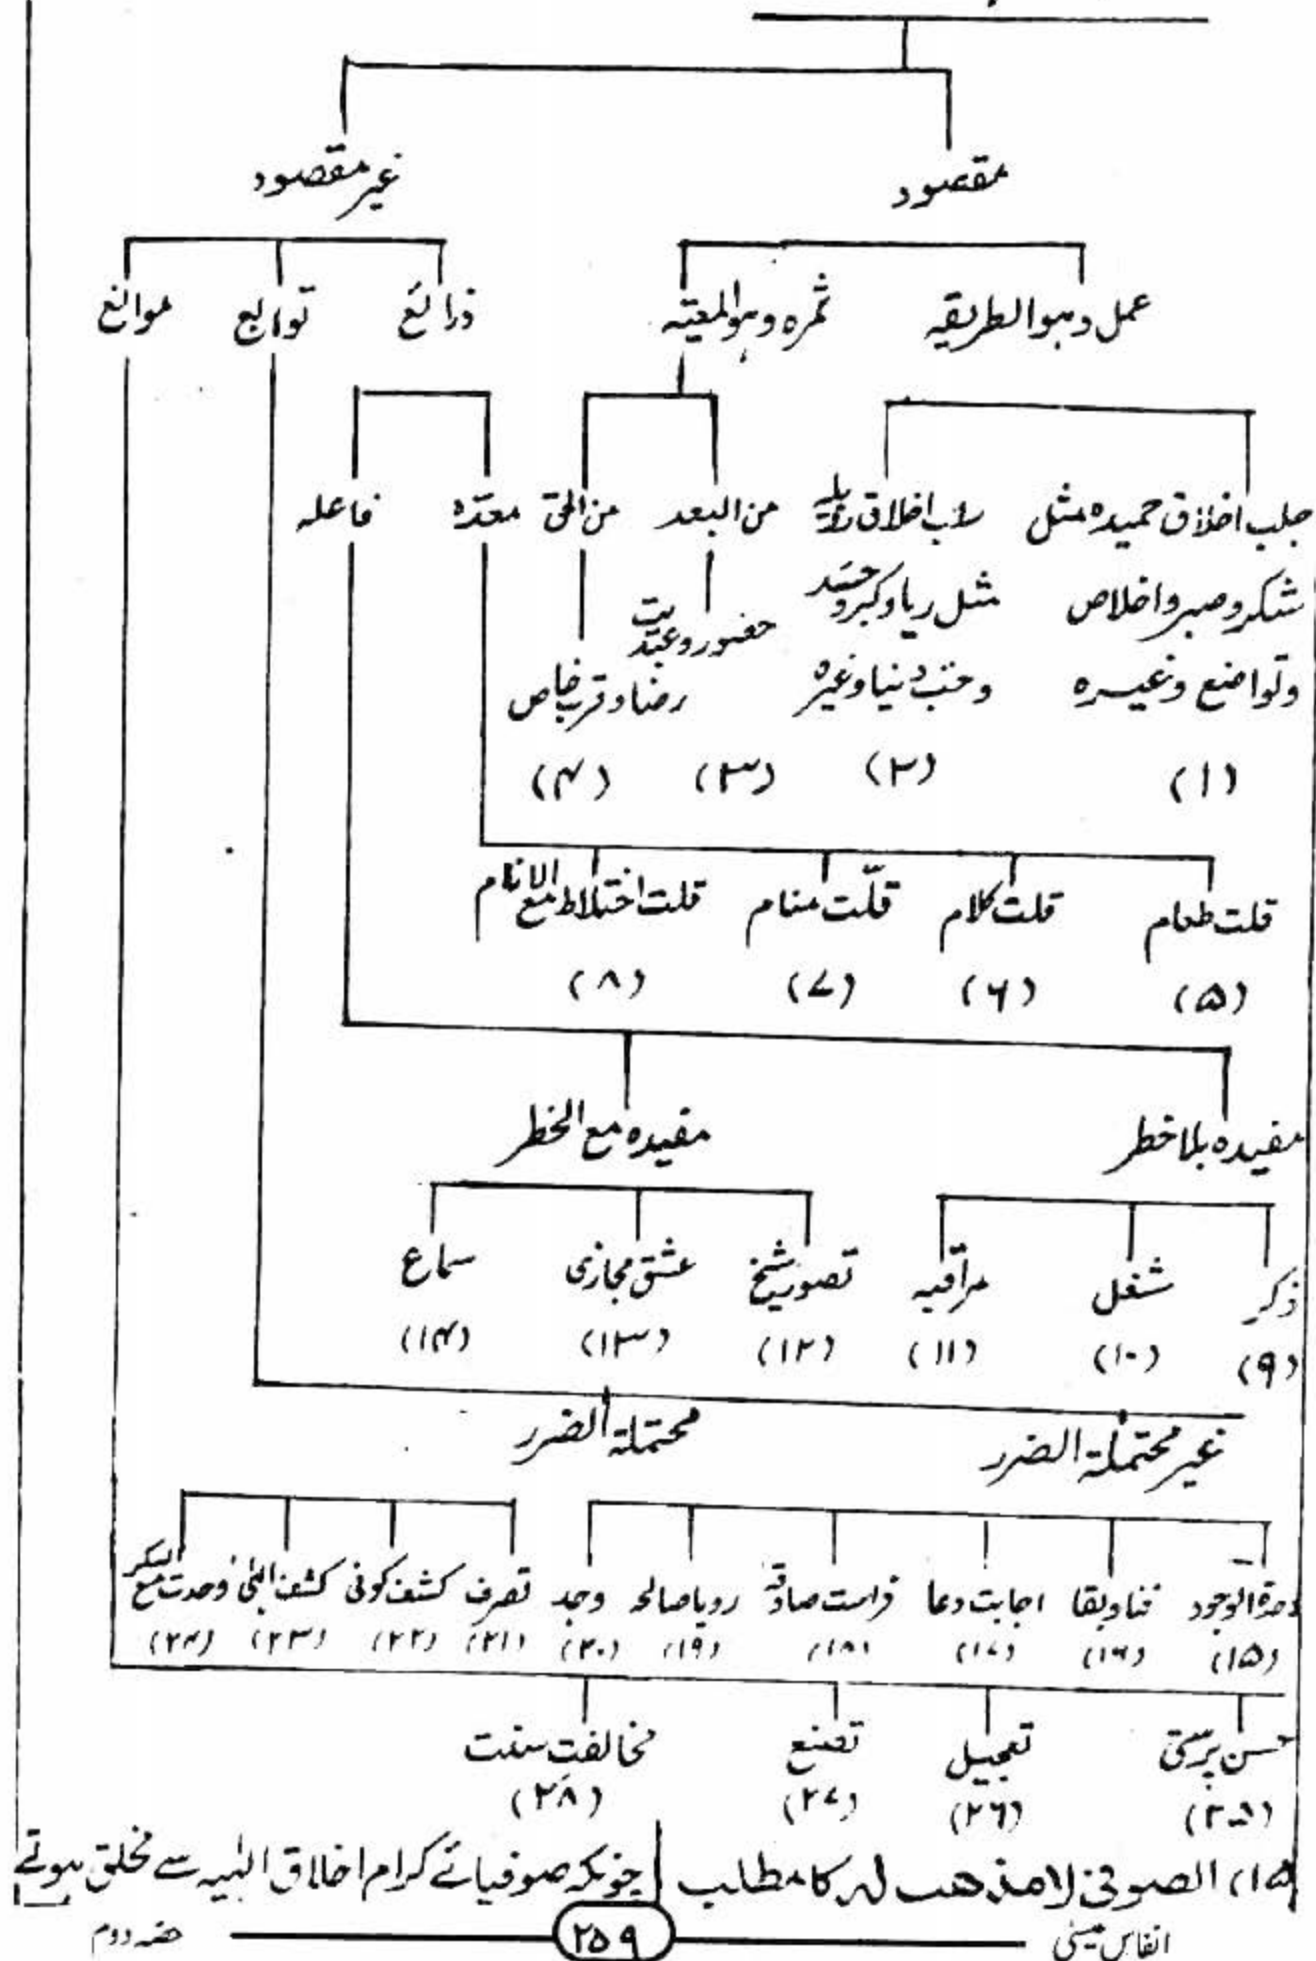 مقصود غیر مقصود
عمل وہو الطریقہ ثمرہ وہو المعیتہ ذرائع توابع موانع
جلب اخلاق حمیدہ مثل شکر و صبر و اخلاص و تواضع وغیرہ (۱)
سلب اخلاق رذیلہ مثل ریا و کبر و حسد و حب دنیا وغیرہ (۲)
من العبد حضور و عبدیت (۳)
من الحق رضا و قرب خاص (۴)
معدہ فاعلہ
قلت طعام قلت کلام قلّت منام قلت اختلاط مع الانام
(۵) (۶) (۷) (۸)
مفیدہ بلا خطر مفیدہ مع الخطر
ذکر شغل مراقبہ تصور شیخ عشق مجازی سماع
(۹) (۱۰) (۱۱) (۱۲) (۱۳) (۱۴)
غیر محتملۃ الضرر محتملۃ الضرر
وحدۃ الوجود فنا و بقا اجابت دعا فراست صادقہ رویا صالحہ وجد تصرف کشف کونی کشف الٰہی وحدت مع السکر
(۱۵) (۱۶) (۱۷) (۱۸) (۱۹) (۲۰) (۲۱) (۲۲) (۲۳) (۲۴)
حسن پرستی تعجیل تصنع مخالفتِ سنت
(۲۵) (۲۶) (۲۷) (۲۸)
(۱۵) الصوفی لا مذھب لہ کا مطلب چونکہ صوفیائے کرام اخلاق الٰہیہ سے تخلق ہوتے
انفاس عیسیٰ ۲۵۹ حصہ دوم